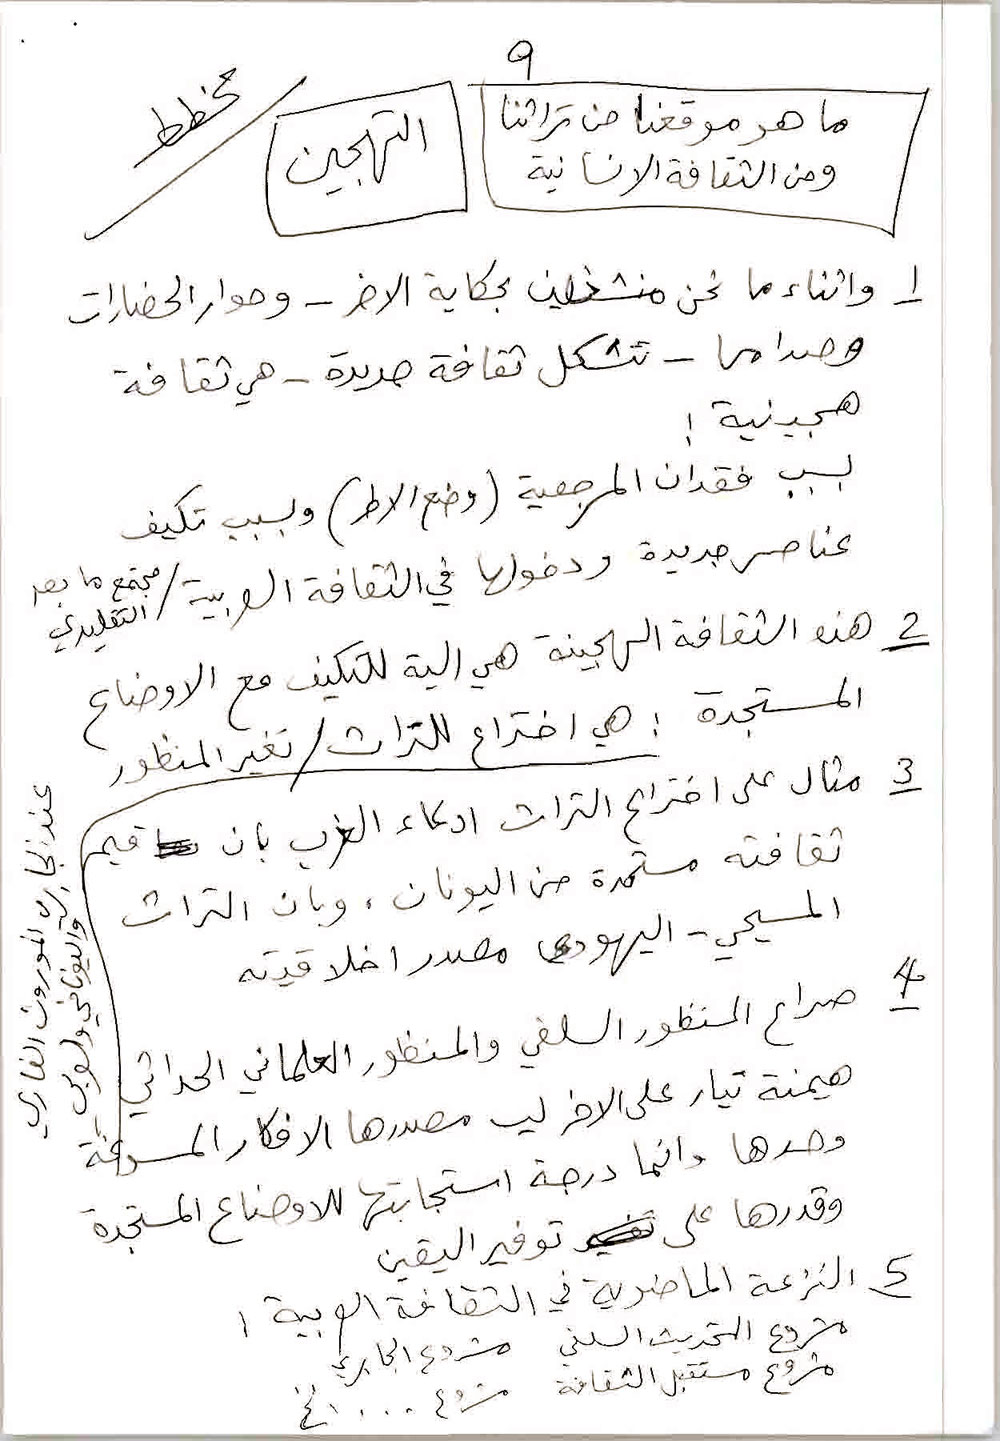 ٩
ما هو موقفنا من تراثنا
ومن الثقافة الانسانية
التهجين
مخطط
1 واثناء ما نحن منشغلين بحكاية الاخر - وحوار الحضارات
وصدامها - تتشكل ثقافة جديدة - هي ثقافة
هجينية !
بسبب فقدان المرجعية (وضع الاطر) وبسبب تكيف
عناصر جديدة ودخولها في الثقافة العربية / مجتمع ما بعد
التقليدي
2 هذه الثقافة الهجينة هي الية للتكيف مع الاوضاع
المستجدة : هي اختراع للتراث / تغير المنظور
3 مثال على اختراع التراث ادعاء الغرب بان قيم
ثقافته مستمدة من اليونان ، وبان التراث
المسيحي - اليهودي مصدر اخلاقيته
4 صراع المنظور السلفي والمنظور العلماني الحداثي
هيمنة تيار على الاخر ليس مصدرها الافكار المسبقة
وحدها وانما درجة استجابتها للاوضاع المستجدة
وقدرها على توفير اليقين
5 النزعة الماضوية في الثقافة العربية :
مشروع التحديث السلفي مشروع الجابري
مشروع مستقبل الثقافة مشروع ... الخ
عند الجابري الموروث الفارسي
واليوناني والعربي